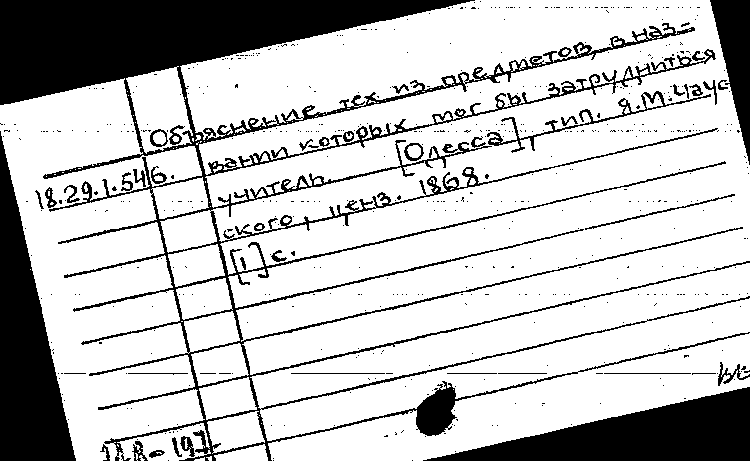 Объяснение тех из предметов, в наз-
вании которых мог бы затрудниться
18.29.1.546.
учитель. [Одесса], тип. Я.М.Чаус
ского, ценз. 1868.
[1] с.